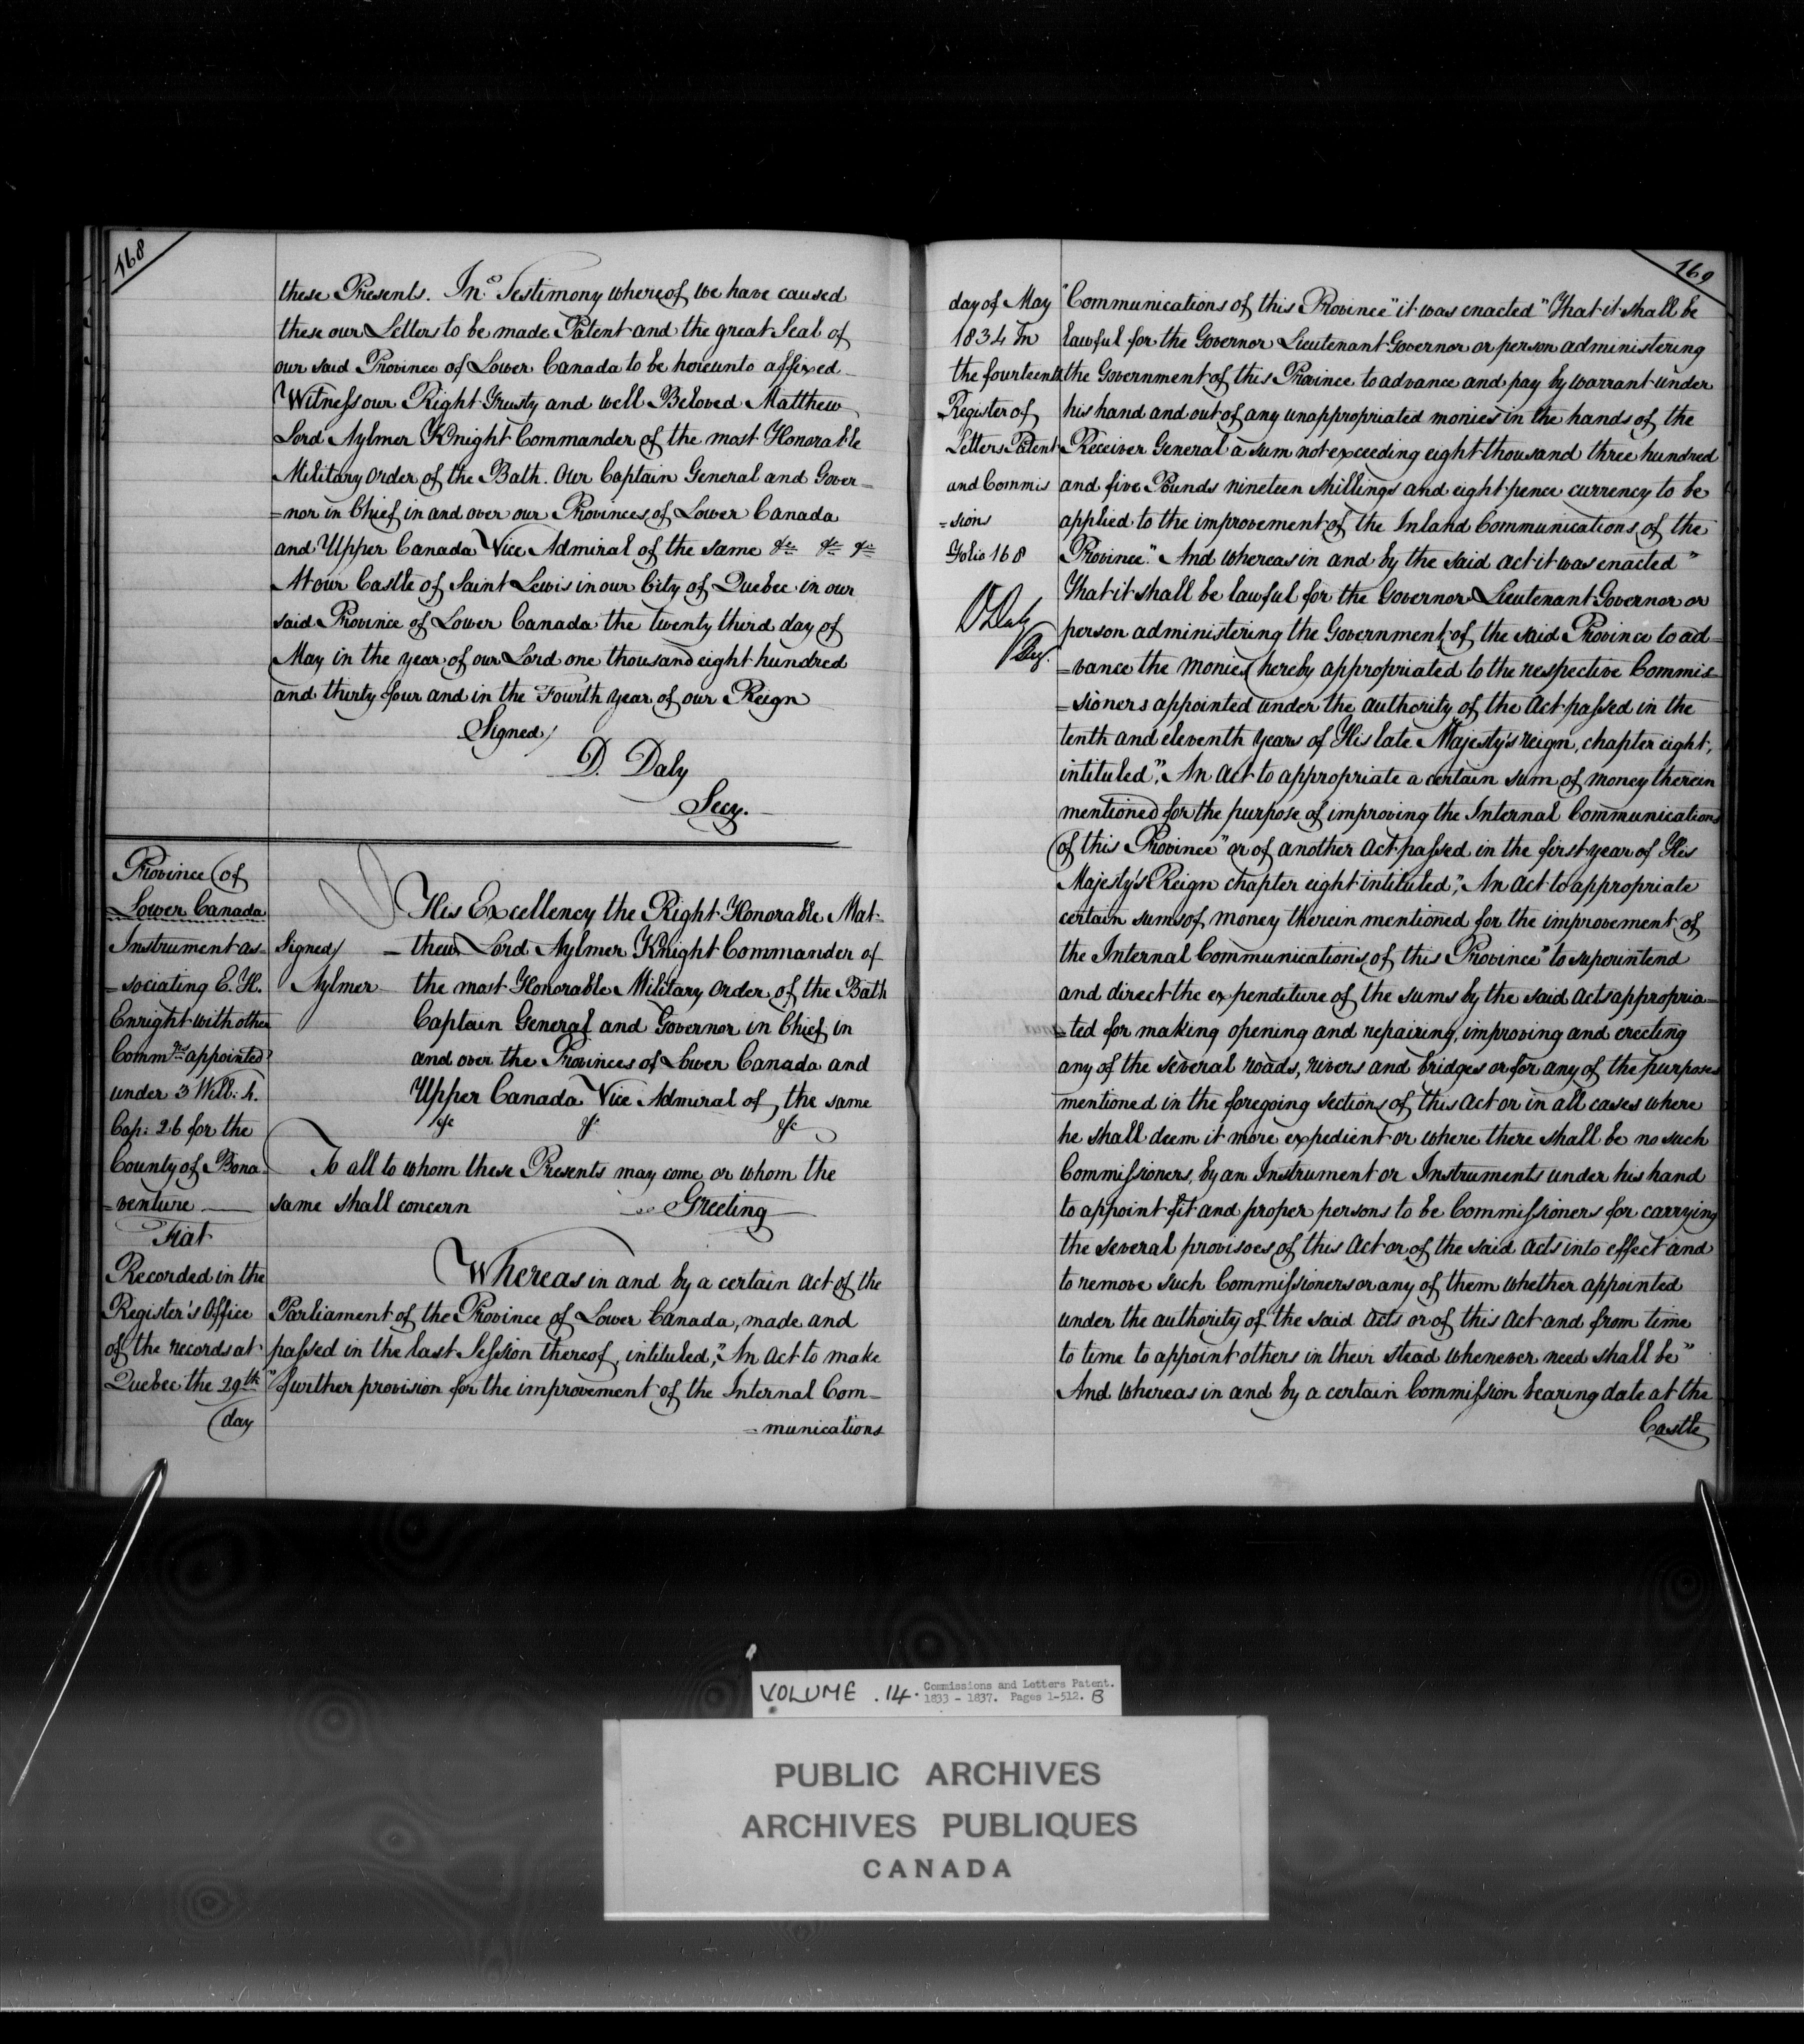 168
these Presents. In Testimony whereof we have caused
these our Letters to be made Patent and the great Seal of
our said Province of Lower Canada to be hereunto affixed
Witness our Right Trusty and well Beloved Matthew
Lord Aylmer Knight Commander of the most Honorable
Military order of the Bath. Our Captain General and Gover=
=nor in Chief in and over our Provinces of Lower Canada
and Upper Canada Vice Admiral of the same &c &c &c
At our Castle of Saint Lewis in our City of Quebec in our
said Province of Lower Canada the twenty third day of
May in the year of our Lord one thousand eight hundred
and thirty four and in the Fourth year of our Reign
Signed/
D. Daly
Secy.
Province of
Lower Canada
Instrument as=
=sociating E. H.
Enright with other
Commrs appointed
under 3 Will: 4.
Cap: 26 for the
County of Bona
=venture
Fiat
Recorded in the
Register's Office
of the records at
Quebec the 29th
day
Signed/
Aylmer
His Excellency the Right Honorable Mat-
=thew Lord Aylmer Knight Commander of
the most Honorable Military order of the Bath
Captain General and Governor in Chief in
and over the Provinces of Lower Canada and
Upper Canada Vice Admiral of the same
&c &c &c
To all to whom these Presents may come or whom the
same shall concern Greeting
Whereas in and by a certain act of the
Parliament of the Province of Lower Canada, made and
passed in the last Session thereof, intituled, "An Act to make
"further provision for the improvement of the Internal Com=
=munications
169
day of May
1834 In
the fourteenth
Register of
Letters Patent
and Commis
=sions
Folio 168
D Daly
Secy.
"Communications of this Province" it was enacted "That it shall be
lawful for the Governor Lieutenant Governor or person administering
the Government of this Province to advance and pay by warrant under
his hand and out of any unappropriated monies in the hands of the
Receiver General a sum not exceeding eight thousand three hundred
and five Pounds nineteen shillings and eight pence currency to be
applied to the improvement of the Inland Communications of the
Province." And whereas in and by the said act it was enacted "
That it shall be lawful for the Governor Lieutenant Governor or
person administering the Government of the said Province to ad=
=vance the monies hereby appropriated to the respective Commis=
=sioners appointed under the authority of the Act passed in the
tenth and eleventh years of His late Majesty's reign, chapter eight,
intituled, "An act to appropriate a certain sum of money therein
mentioned for the purpose of improving the Internal Communications
of this Province" or of another Act passed in the first year of His
Majesty's Reign chapter eight intituled, "An act to appropriate
certain sums of money therein mentioned for the improvement of
the Internal Communications of this Province" to superintend
and direct the expenditure of the sums by the said acts appropria=
=ted for making opening and repairing, improving and erecting
any of the several roads, rivers and bridges or for any of the purposes
mentioned in the foregoing sections of this act or in all cases where
he shall deem it more expedient or where there shall be no such
Commissioners, by an Instrument or Instruments under his hand
to appoint fit and proper persons to be Commissioners for carrying
the several provisoes of this act or of the said acts into effect and
to remove such Commissioners or any of them whether appointed
under the authority of the said acts or of this act and from time
to time to appoint others in their stead whenever need shall be"
And whereas in and by a certain Commission bearing date at the
Castle
VOLUME .14. Commissions and Letters Patent.
1833 - 1837. Pages 1-512. B
PUBLIC ARCHIVES
ARCHIVES PUBLIQUES
CANADA